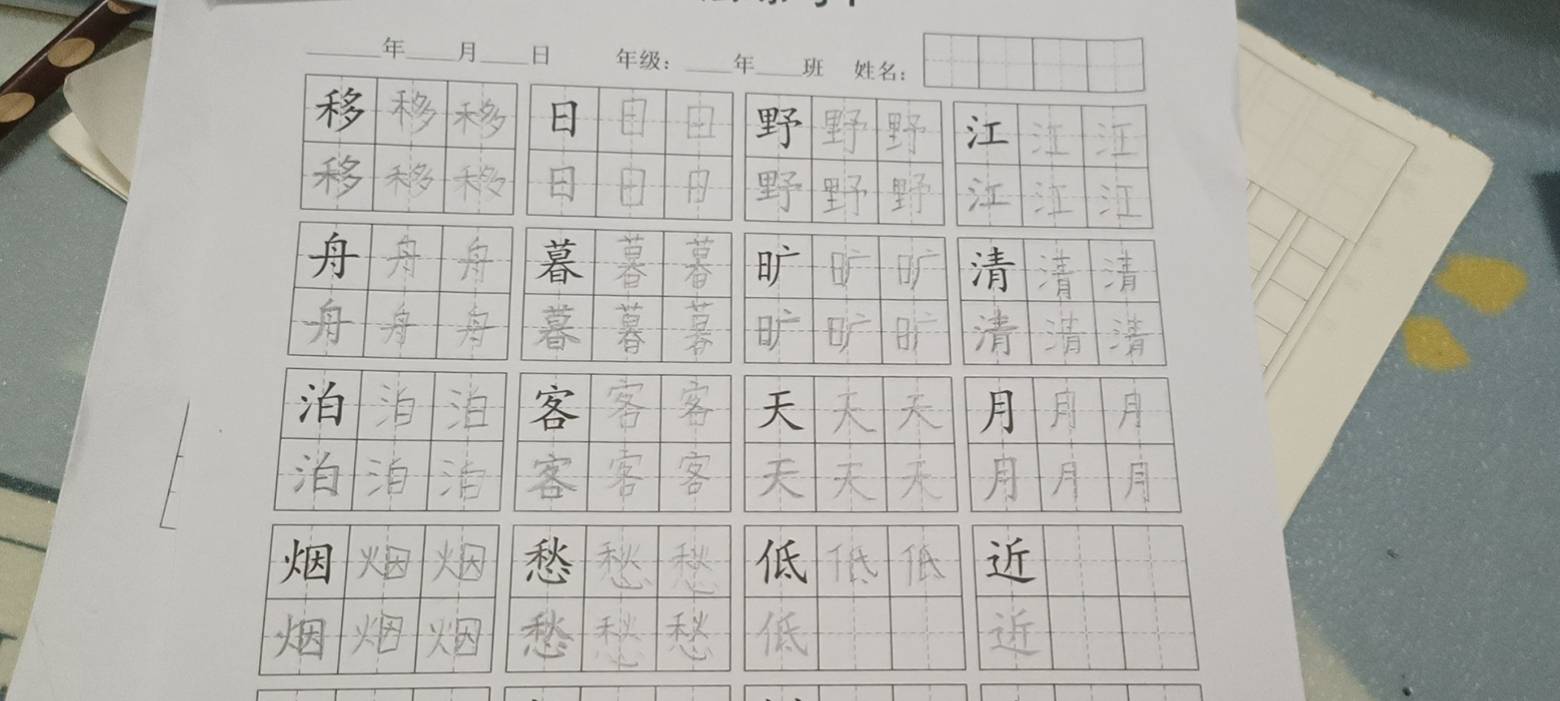 年 月 日 年级： 年 班 姓名：
移 移 移 日 日 日 野 野 野 江 江 江
移 移 移 日 日 日 野 野 野 江 江 江
舟 舟 舟 暮 暮 暮 旷 旷 旷 清 清 清
舟 舟 舟 暮 暮 暮 旷 旷 旷 清 清 清
泊 泊 泊 客 客 客 天 天 天 月 月 月
泊 泊 泊 客 客 客 天 天 天 月 月 月
烟 烟 烟 愁 愁 愁 低 低 低 近
烟 烟 烟 愁 愁 愁 低 近